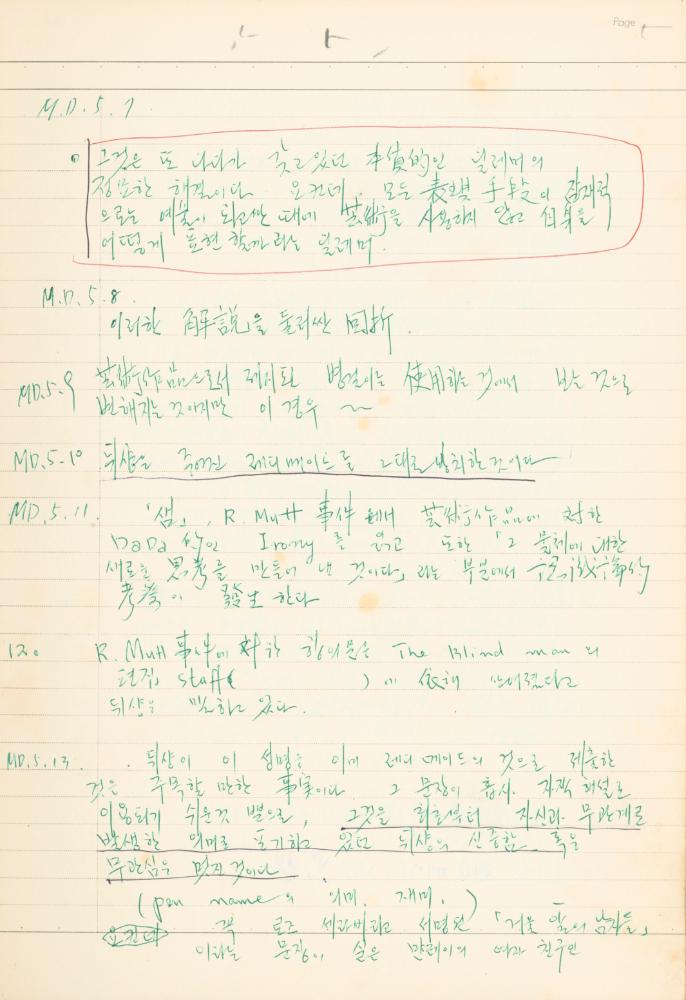 Page
M.D. 5. 7.
그것은 또 다다가 갖고 있던 本質的인 딜레마의
해결이다. 요컨데, 모든 表現手段이 잠재적
으로는 예술이 되고싼 때에 芸術을 사용하지 않고 自身을
어떻게 표현할까 라는 딜레마.
M.D. 5. 8.
이러한 解説을 둘러싼 回折.
MD. 5. 9 芸術作品으로서 제시된 병걸이는 使用하는 것에서 보는 것으로
변해지는 것이지만 이 경우 ~
MD. 5-10 뒤샹은 주어진 레디메이드를 그대로 방치한 것이다
MD. 5. 11. 「샘」, R. Mutt 事件에서 芸術作品에 対한
DaDa 的인 Irony를 읽고 또한 「그 물체에 대한
새로운 思考를 만들어 낸 것이다」 라는 부분에서 認識論的
考察이 發生한다
12. R. Mutt 事件에 対한 항의문은 The Blind man의
편집 staff( )에 依해 쓰여졌다고
뒤샹은 말하고 있다.
MD. 5. 13 . 뒤샹이 이 성명을 이미 레디메이드의 것으로 제출한
것은 주목할 만한 事実이다 그 문장이 흡사 자작 해설로
이용되기 쉬운것 뿐으로, 그것을 최초부터 자신과 무관계로
발생한 의미로 포기하고 있던 뒤샹의 신중함 혹은
무관심은 멋진 것이다
(pen name의 의미, 재미.)
요컨데 로즈 세라비라고 서명된 「거못 알의 남자들」
이라는 문장이 실은 만레이의 여자 친구인